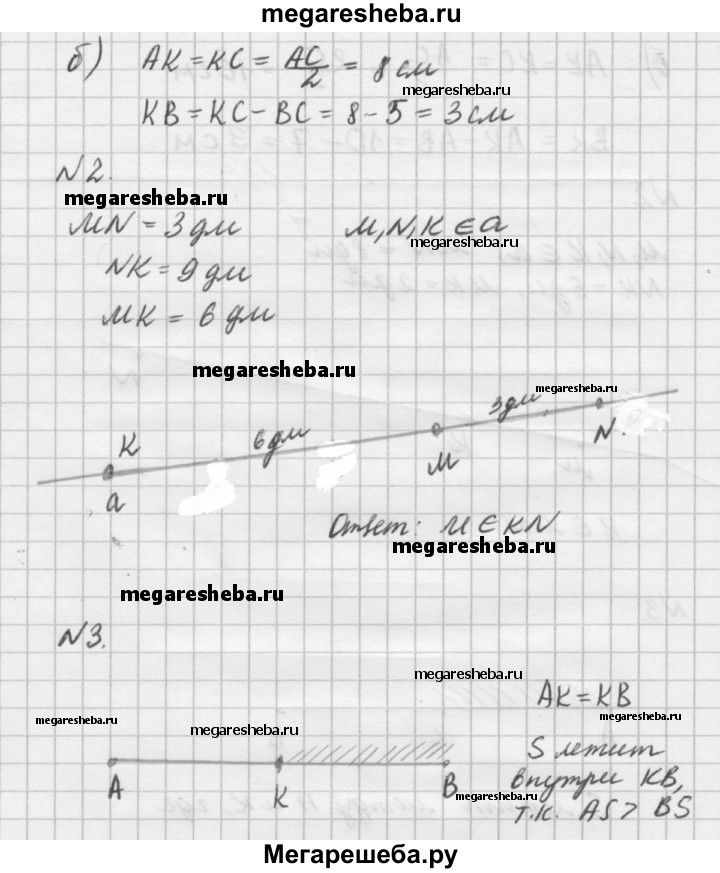 megaresheba.ru
б) AK = KC = AC/2 = 8 см
megaresheba.ru
KB = KC - BC = 8 - 5 = 3 см
N2.
megaresheba.ru
MN = 3 дм M, N, K ∈ a
megaresheba.ru
NK = 9 дм
MK = 6 дм
megaresheba.ru
megaresheba.ru
K 6 дм 3 дм
a M N.
Ответ: M ∈ KN
megaresheba.ru
megaresheba.ru
N3.
megaresheba.ru
AK = KB
megaresheba.ru
megaresheba.ru
megaresheba.ru
A K B
S лежит
внутри KB,
megaresheba.ru
т.к. AS > BS
Мегарешеба.ру